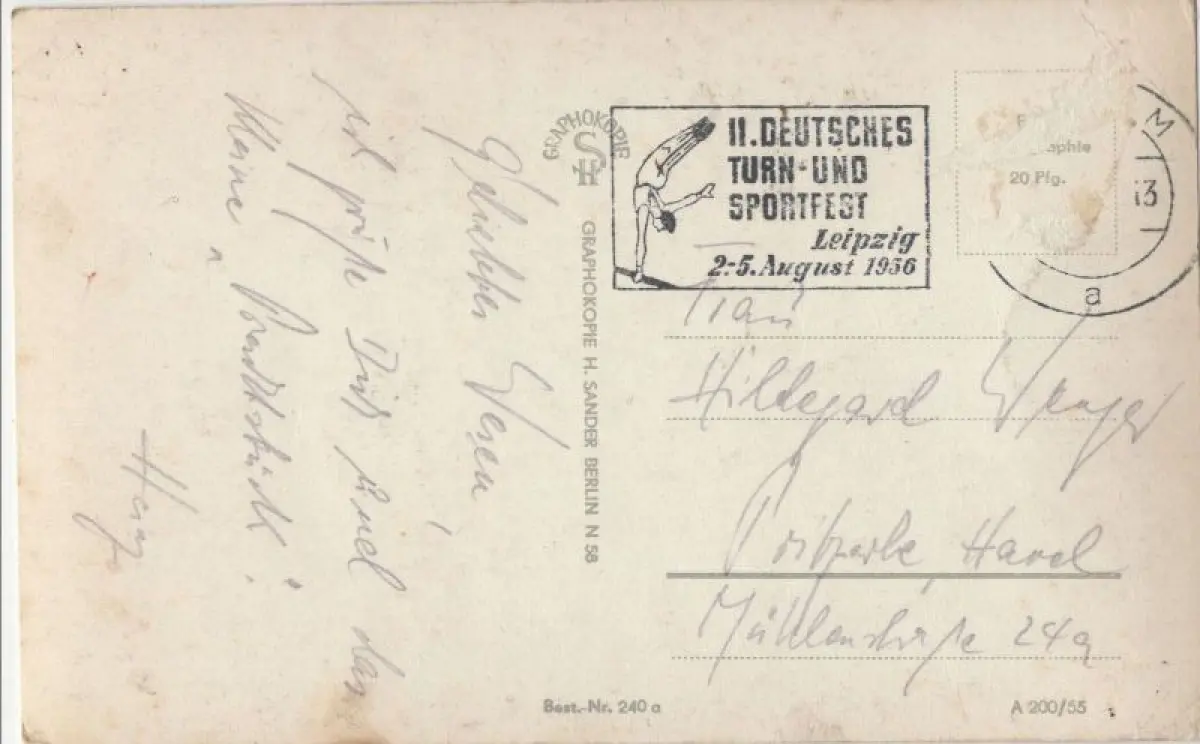 Geliebter Wesen,
ich grüße Dich und das
kleine Prachtstück!
GRAPHOKOPIE
SH
GRAPHOKOPIE H. SANDER BERLIN N 58
II. DEUTSCHES
TURN- UND
SPORTFEST
Leipzig
2.-5. August 1956
20 Pfg.
a
Frau
Hildegard
Havel
Mühlenstraße 24a
Best.-Nr. 240 a
A 200/55